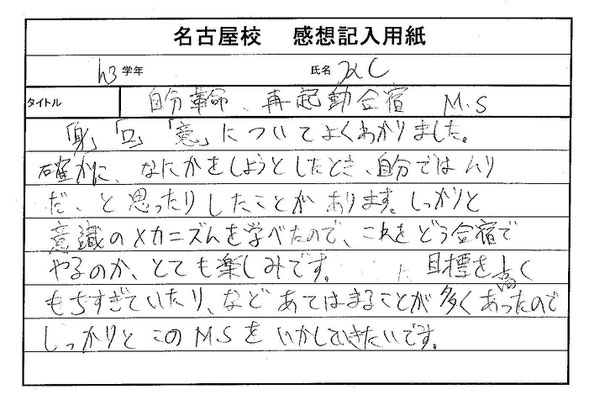 名古屋校 感想記入用紙
h3 学年 氏名 C
タイトル 自分革命、再起動合宿 M.S
「身」「口」「意」についてよくわかりました。
確かに、なにかをしようとしたとき、自分ではムリ
だ、と思ったりしたことがあります。しっかりと
意識のメカニズムを学べたので、これをどう合宿で
やるのか、とても楽しみです。 目標を高く
もちすぎていたり、などあてはまることが多くあったので
しっかりとこのM.Sをいかしていきたいです。